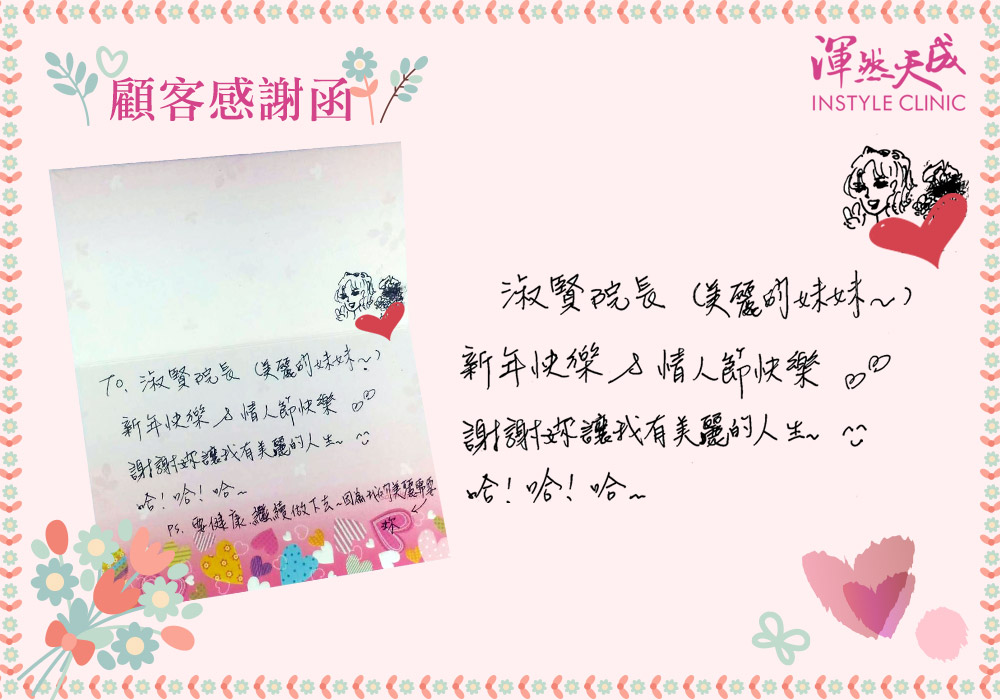 顧客感謝函
渾然天成
INSTYLE CLINIC
To. 淑賢院長（美麗的妹妹~）
新年快樂 & 情人節快樂
謝謝妳讓我有美麗的人生~ ^^
哈！哈！哈~
Ps. 要健康.繼續做下去~因為我的美麗需要
妳
淑賢院長（美麗的妹妹~）
新年快樂 & 情人節快樂
謝謝妳讓我有美麗的人生~ ^^
哈！哈！哈~